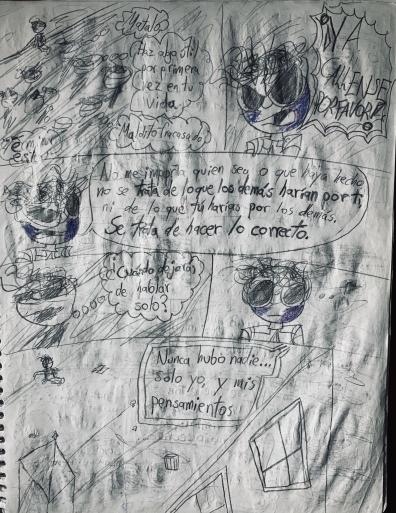 ¡Mátalo!
¡Haz algo útil
por primera
vez en tu
vida!
Maldito fracasado
¡YA
CÁLLENSE
POR FAVOR!
No me importa quien sea o que haya hecho
no se trata de lo que los demás harían por ti
ni de lo que tú harías por los demás.
Se trata de hacer lo correcto.
¿Cuándo dejarás
de hablar
solo?
Nunca hubo nadie...
sólo yo, y mis
pensamientos